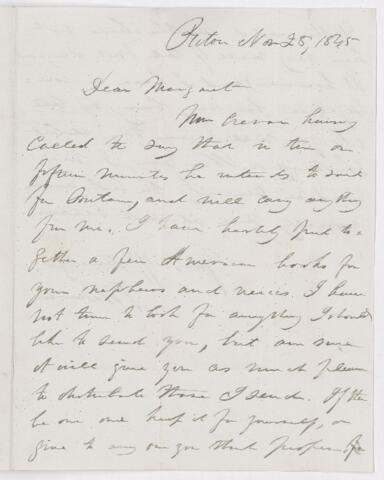 Picton Nov 28, 1845
Dear Margaret
Mr. having
called to say that in ten or
fifteen minutes he intends to sail
for Britain, and will carry anything
for me. I have hastily put to-
gether a few American books for
your nephews and nieces. I have
not time to look for anything I should
like to send you, but am sure
it will give you as much pleasure
to distribute those I send. If there
be one one keep it for yourself, or
give to any one you think proper. For